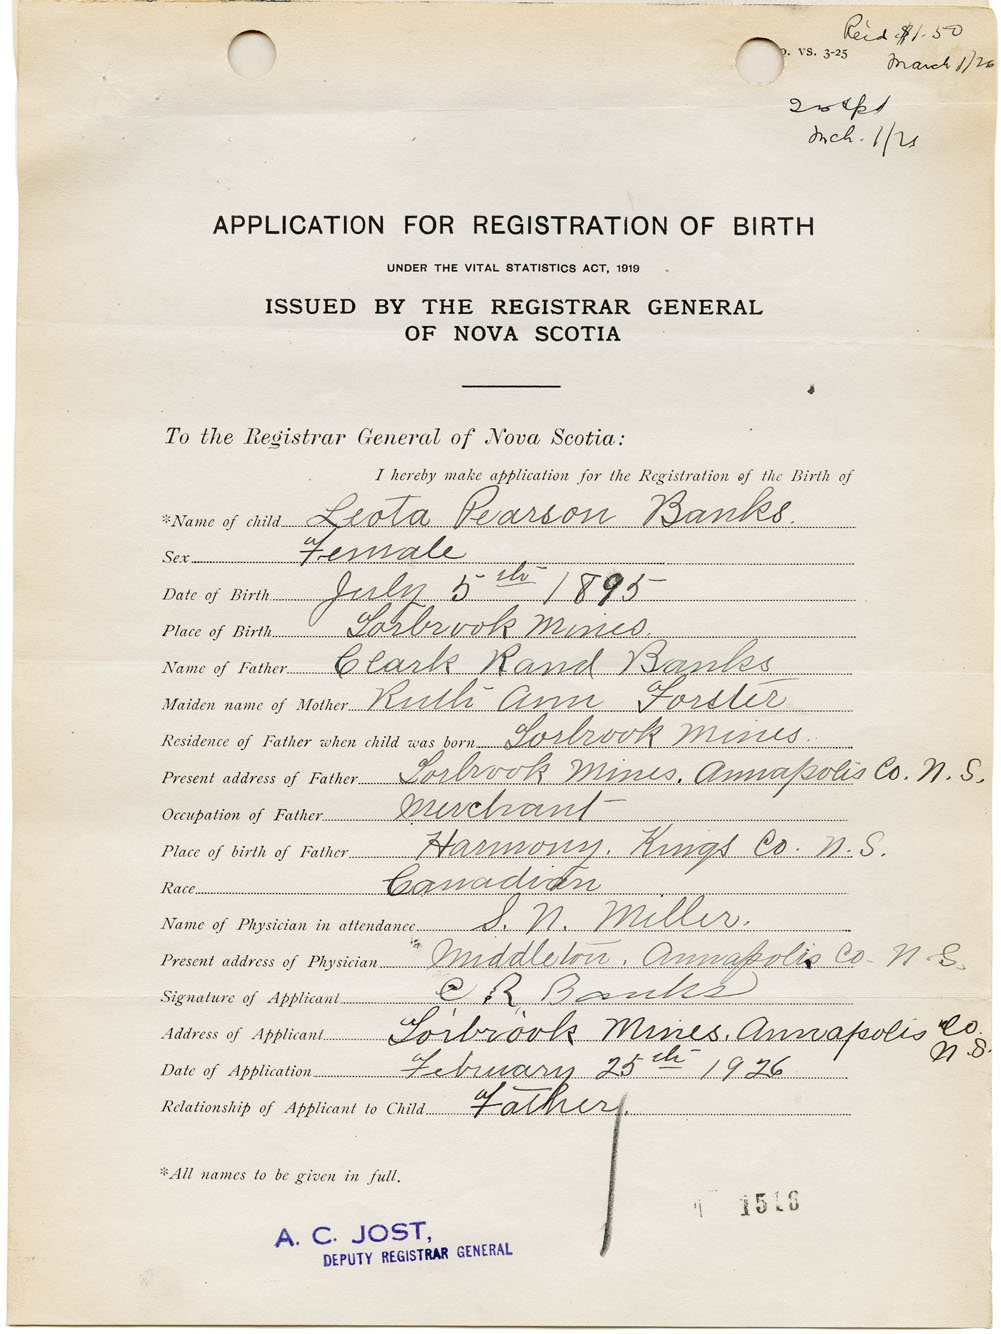 Rec'd $1.50
o. VS. 3-25
March 1/26
Mch. 1/26
APPLICATION FOR REGISTRATION OF BIRTH
UNDER THE VITAL STATISTICS ACT, 1919
ISSUED BY THE REGISTRAR GENERAL
OF NOVA SCOTIA
To the Registrar General of Nova Scotia:
I hereby make application for the Registration of the Birth of
*Name of child Leota Pearson Banks.
Sex Female
Date of Birth July 5th 1895
Place of Birth Torbrook Mines.
Name of Father Clark Rand Banks
Maiden name of Mother Ruth Ann Forster
Residence of Father when child was born Torbrook Mines.
Present address of Father Torbrook Mines, Annapolis Co. N. S.
Occupation of Father Merchant
Place of birth of Father Harmony, Kings Co. N. S.
Race Canadian
Name of Physician in attendance S. N. Miller.
Present address of Physician Middleton, Annapolis Co N. S.
Signature of Applicant C R Banks
Address of Applicant Torbrook Mines, Annapolis Co.
N. S.
Date of Application February 25th 1926
Relationship of Applicant to Child Father.
*All names to be given in full.
1516
A. C. JOST,
DEPUTY REGISTRAR GENERAL